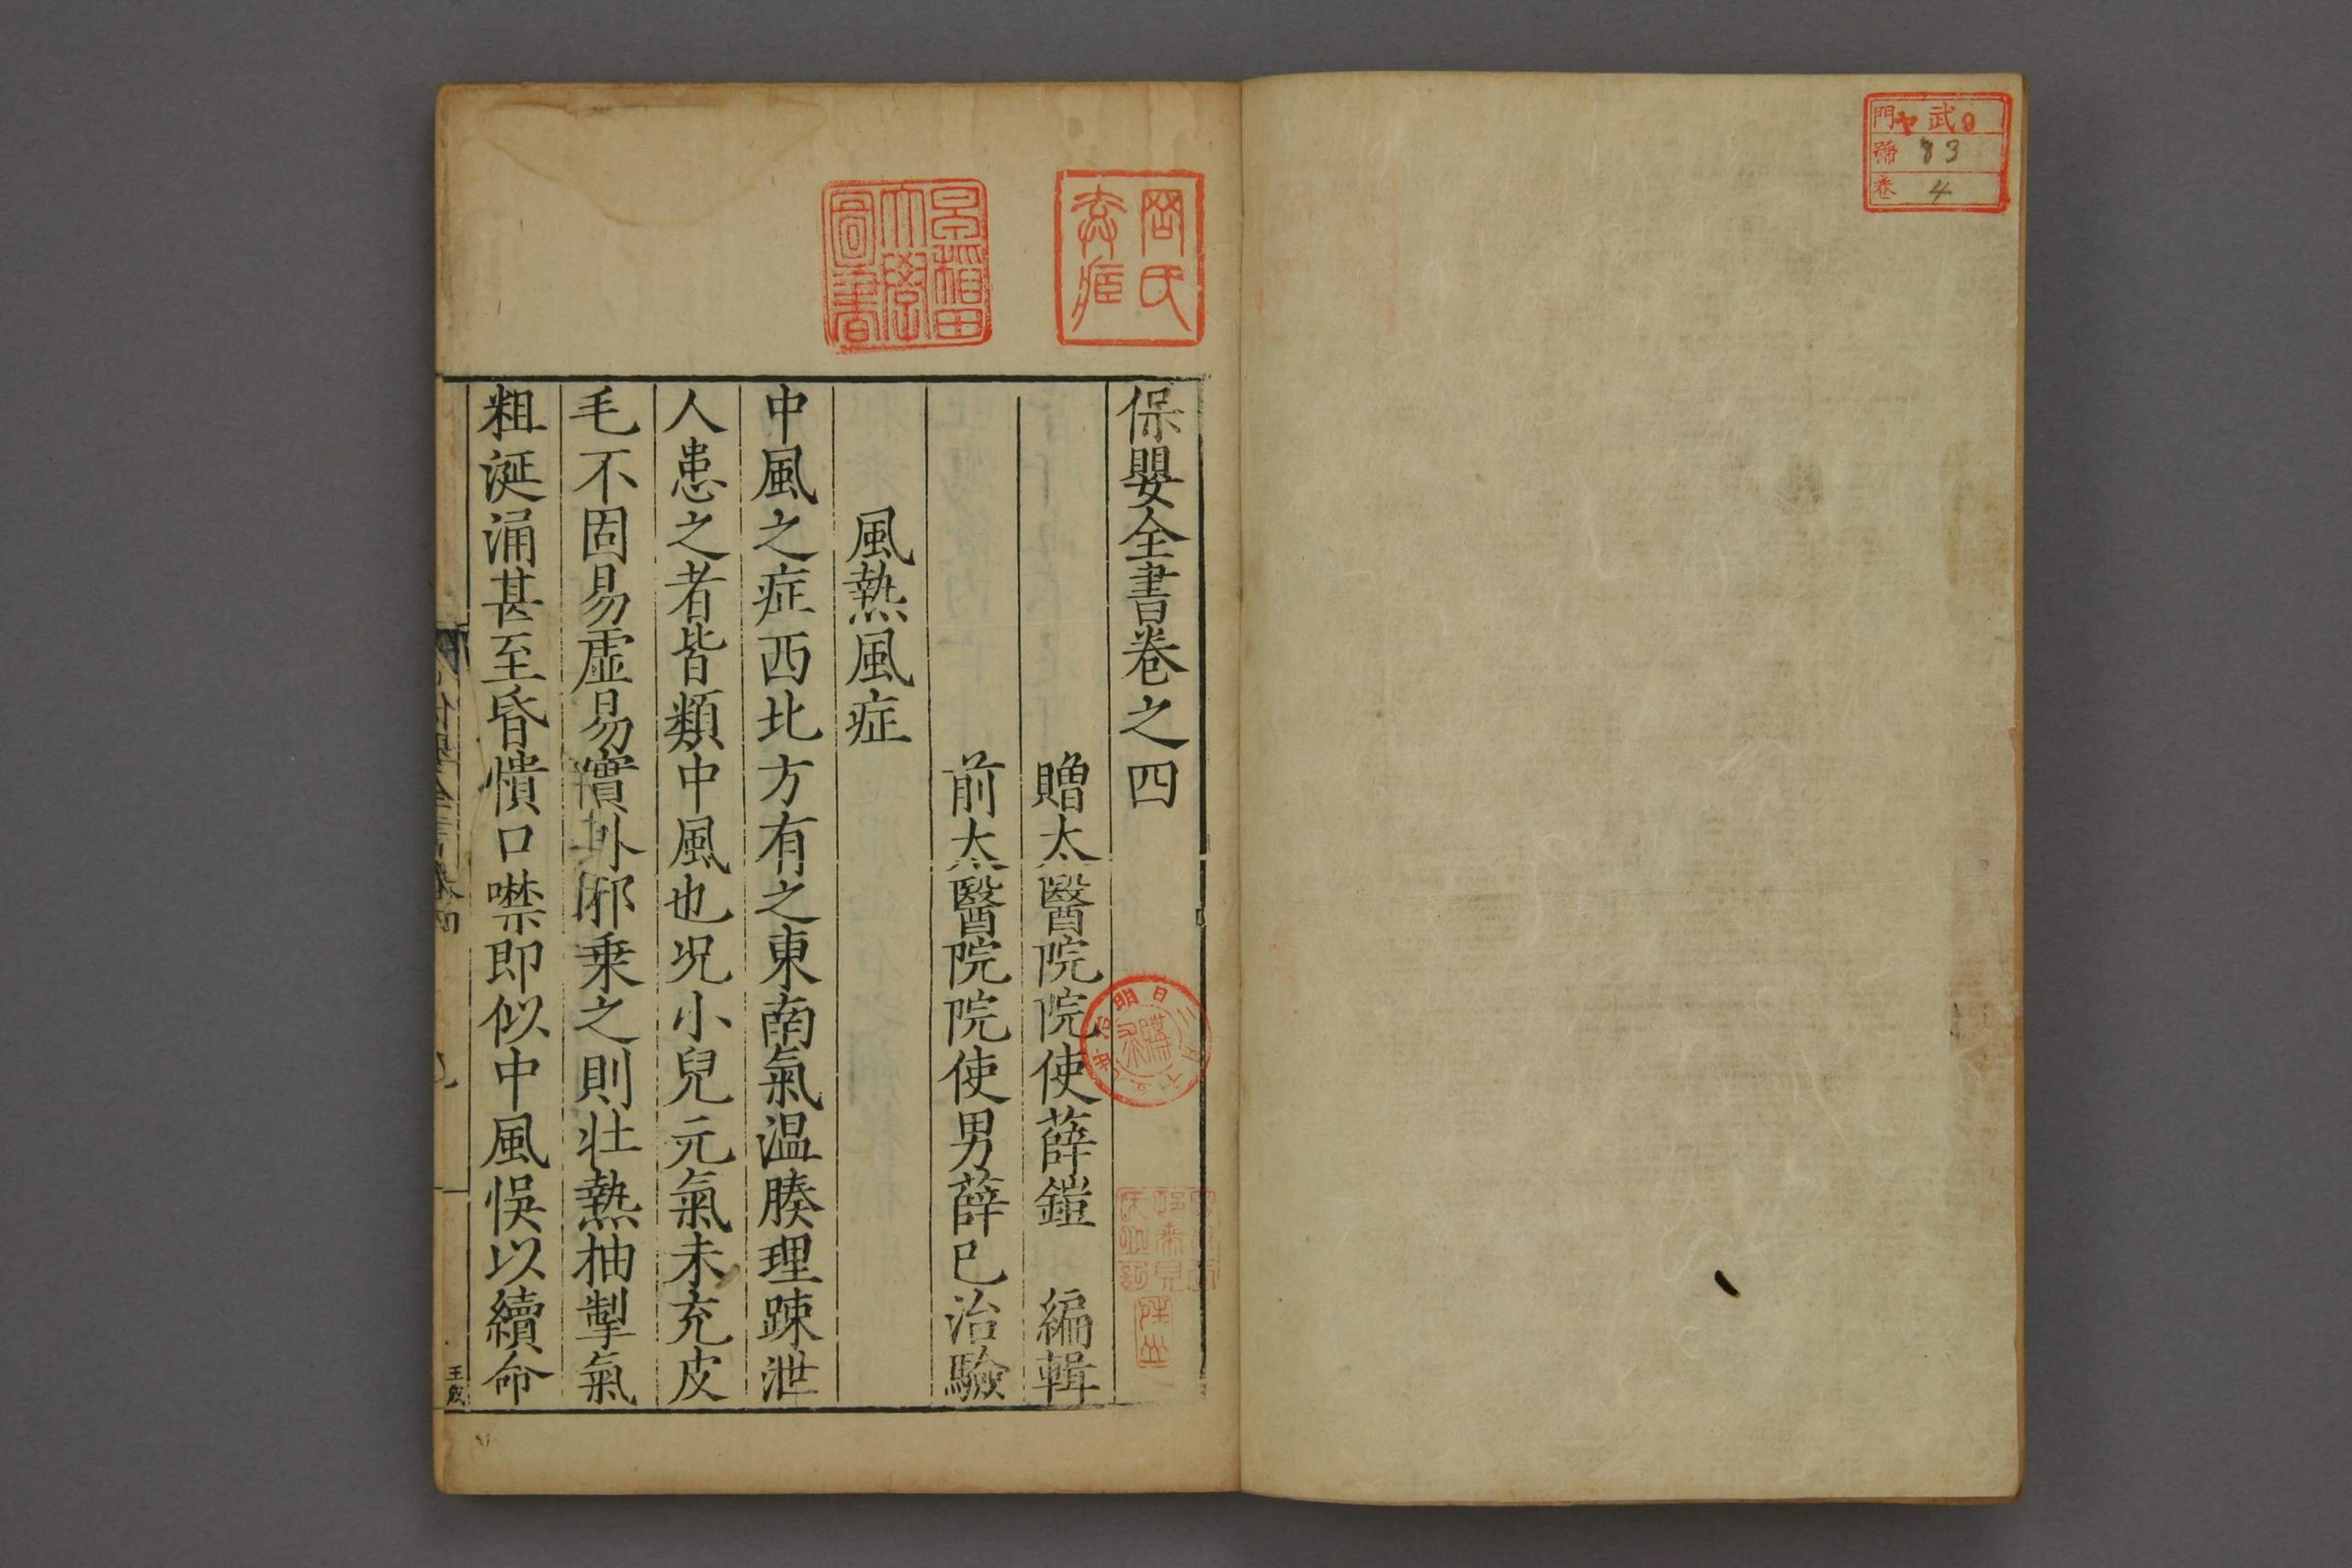 門 ヤ 武9
號 83
卷 4
保嬰全書卷之四
贈太醫院院使薛鎧　編輯
前太醫院院使男薛已治驗
風熱風症
中風之症西北方有之東南氣温腠理踈泄
人患之者皆類中風也况小兒元氣未充皮
毛不固易虛易實外邪乗之則壮熱抽掣氣
粗涎涌甚至昏憒口噤即似中風悞以續命
早稲田大學圖書